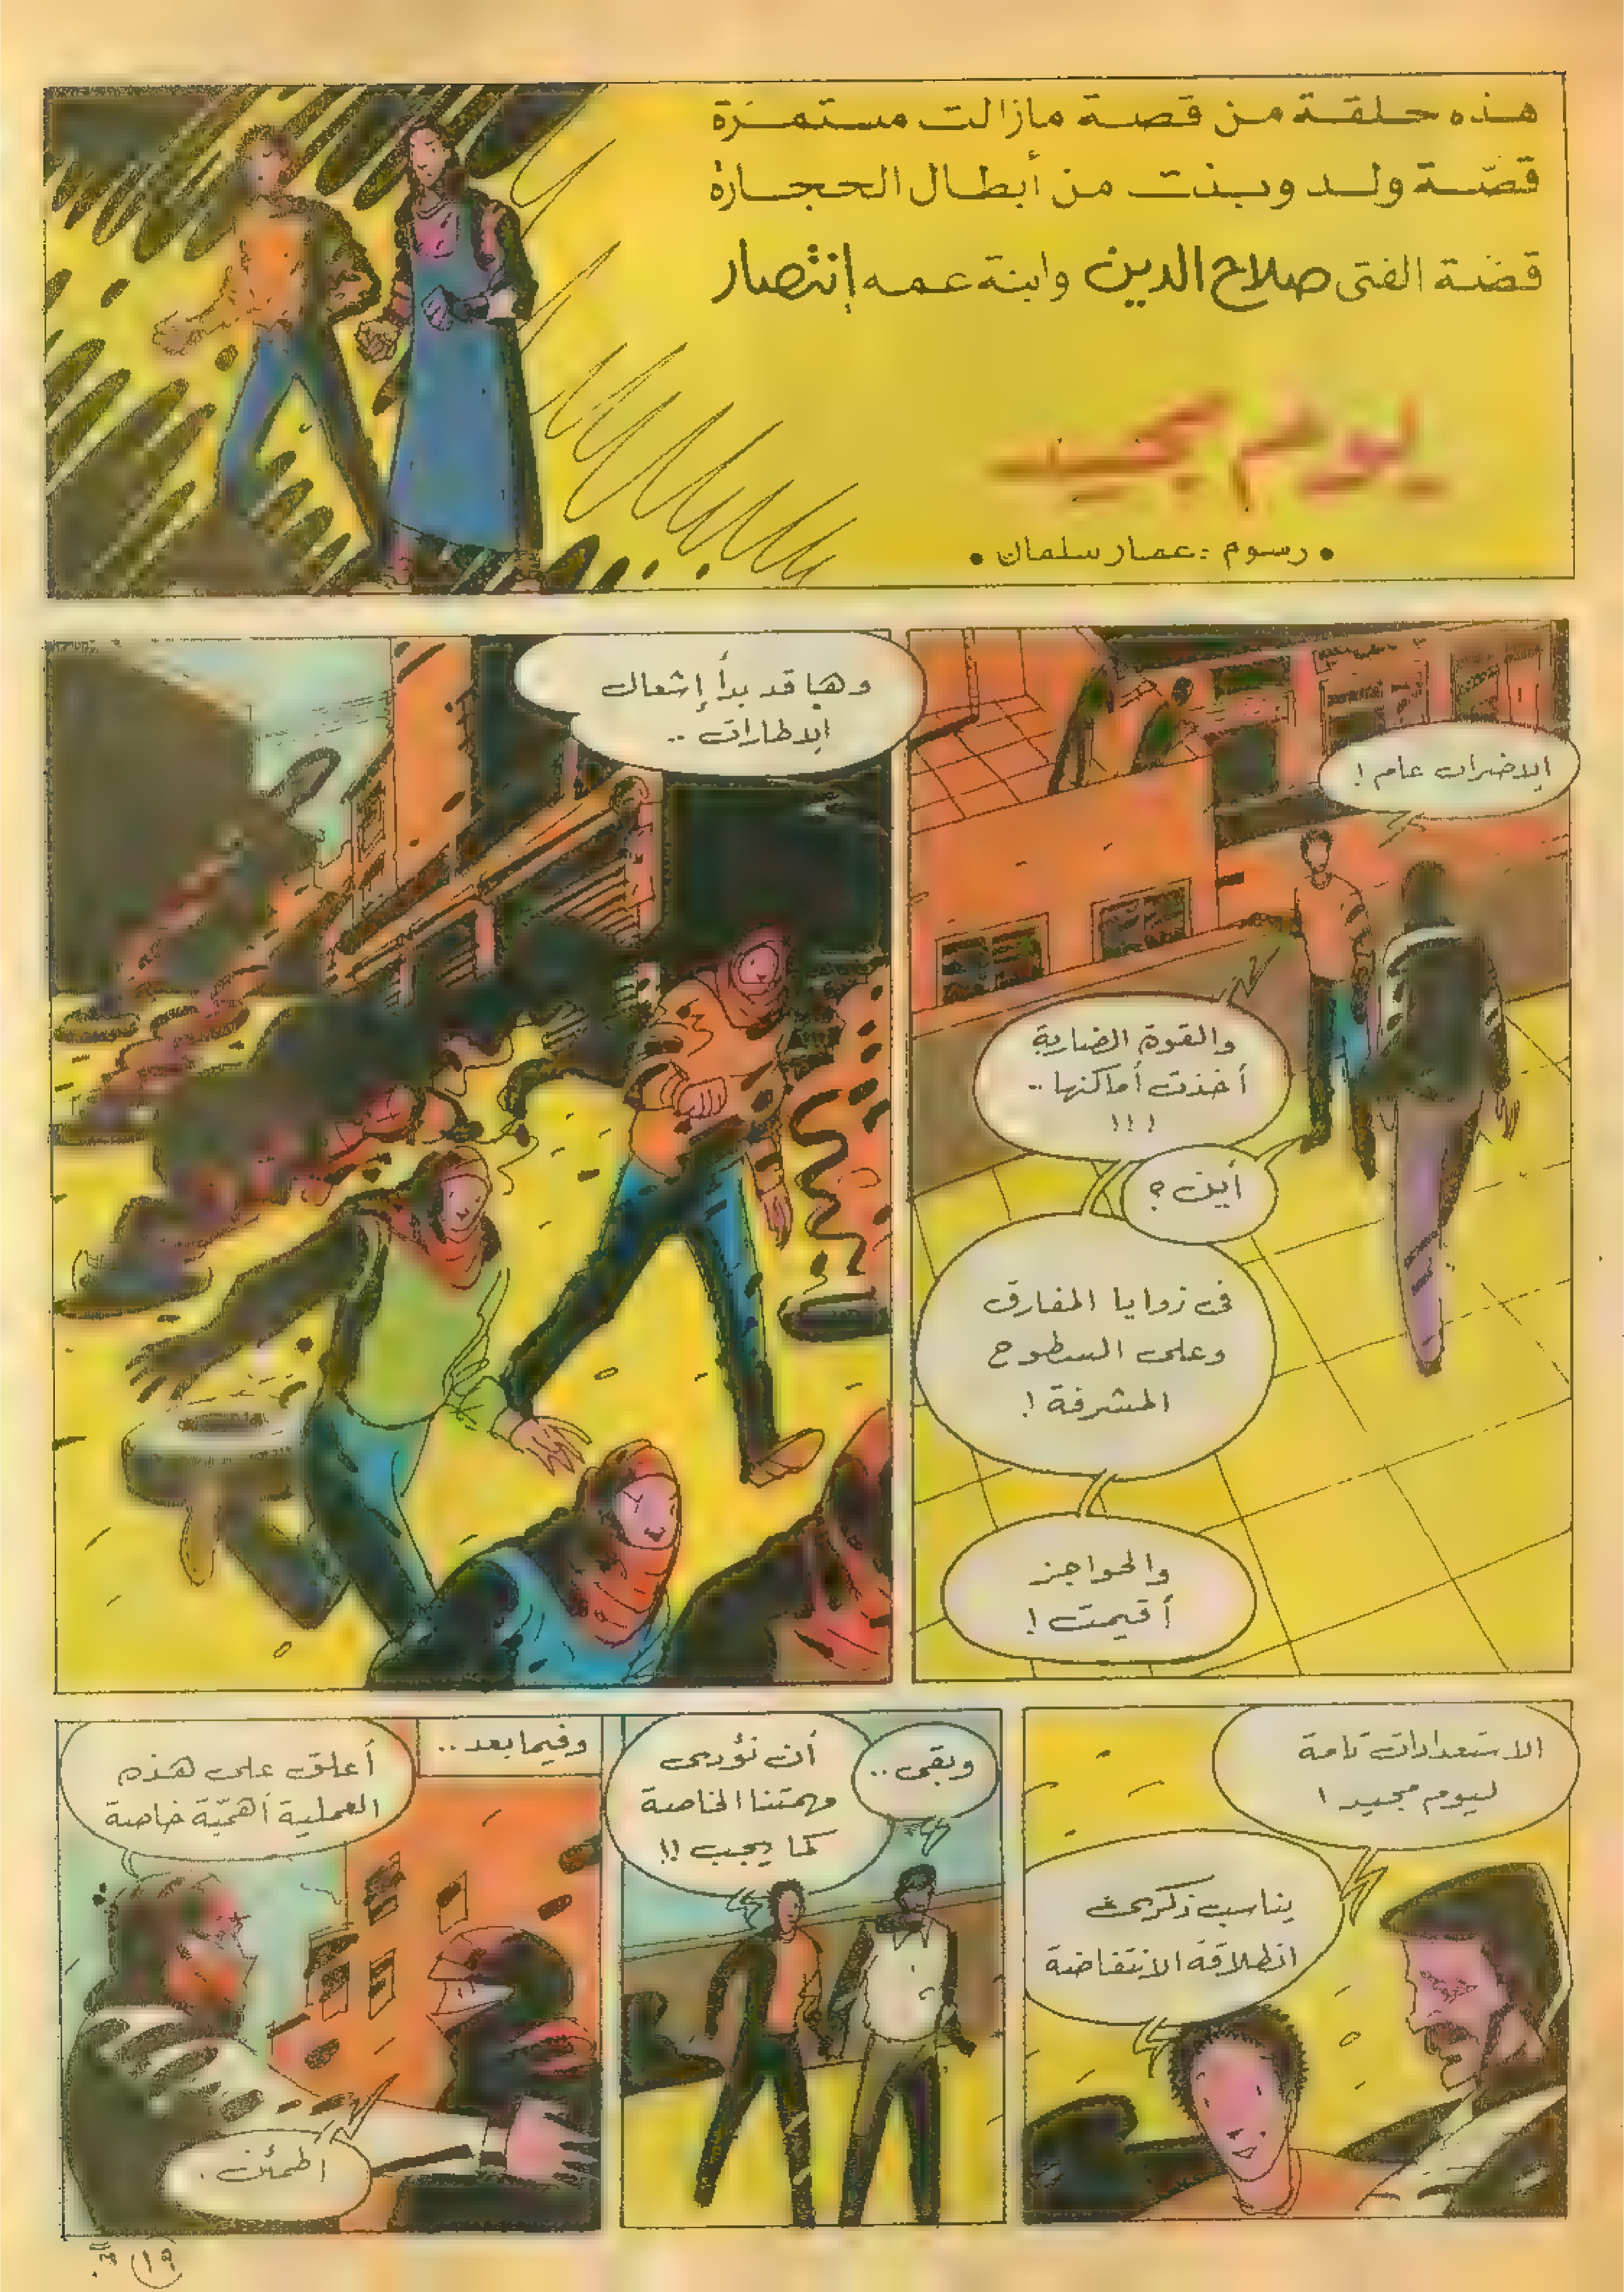 هذه حلقة من قصة مازالت مستمرة
قصّة ولد وبنت من أبطال الحجارة
قصّة الفتى صلاح الدين وابنة عمه إنتصار
يوم مجيد
• رسوم : عمار سلمان •
الاضراب عام !
والقوة الضاربة
أخذت أماكنها ..
! ! !
أين ؟
في زوايا المفارق
وعلى السطوح
المشرفة !
والحواجز
أقيمت !
وها قد بدأ إشعال
الاطارات ..
الاستعدادات تامة
ليوم مجيد !
يناسب ذكرى
انطلاقة الانتفاضة
وبقي ..
أن نؤدي
مهمتنا الخاصة
كما يجب !!
وفيما بعد ..
أعلق على هذه
العملية أهمّية خاصة
اطمئن .
١٩